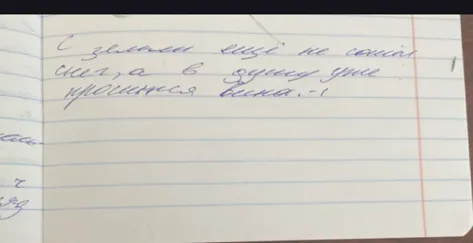 С земли ещё не сошёл
снег, а в душу уже
просится весна. -1